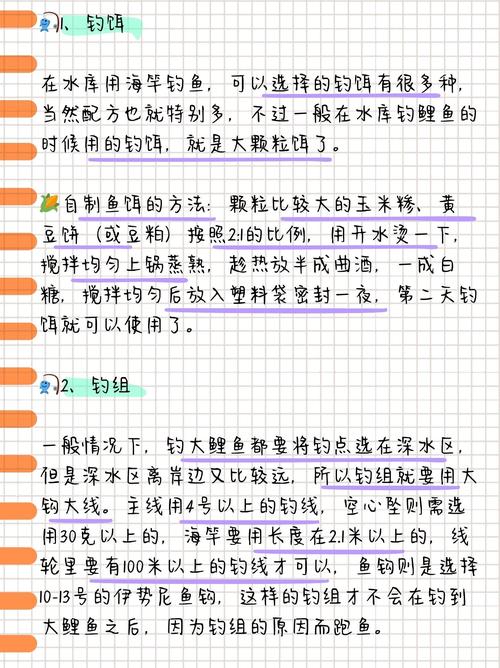 1、钓饵
在水库用海竿钓鱼，可以选择的钓饵有很多种，
当然配方也就特别多，不过一般在水库钓鲤鱼的
时候用的钓饵，就是大颗粒饵了。
自制鱼饵的方法：颗粒比较大的玉米糁、黄
豆饼（或豆粕）按照2:1的比例，用开水烫一下，
搅拌均匀上锅蒸熟，趁热放半成曲酒，一成白
糖，搅拌均匀后放入塑料袋密封一夜，第二天钓
饵就可以使用了。
2、钓组
一般情况下，钓大鲤鱼都要将钓点选在深水区，
但是深水区离岸边又比较远，所以钓组就要用大
钩大线。主线用4号以上的钓线，空心坠则需选
用30克以上的，海竿要用长度在2.1米以上的，线
轮里要有100米以上的钓线才可以，鱼钩则是选择
10-13号的伊势尼鱼钩，这样的钓组才不会在钓到
大鲤鱼之后，因为钓组的原因而跑鱼。